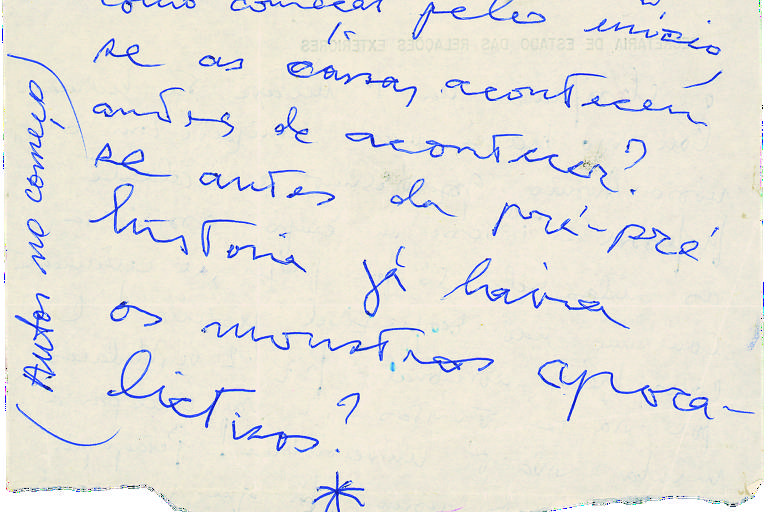 como começar pelo início
SECRETARIA DE ESTADO DAS RELAÇÕES EXTERIORES
se as coisas acontecem
antes de acontecer?
se antes da pré-pré
história já havia
os monstros apoca-
lícticos?
*
(Autor no começo)